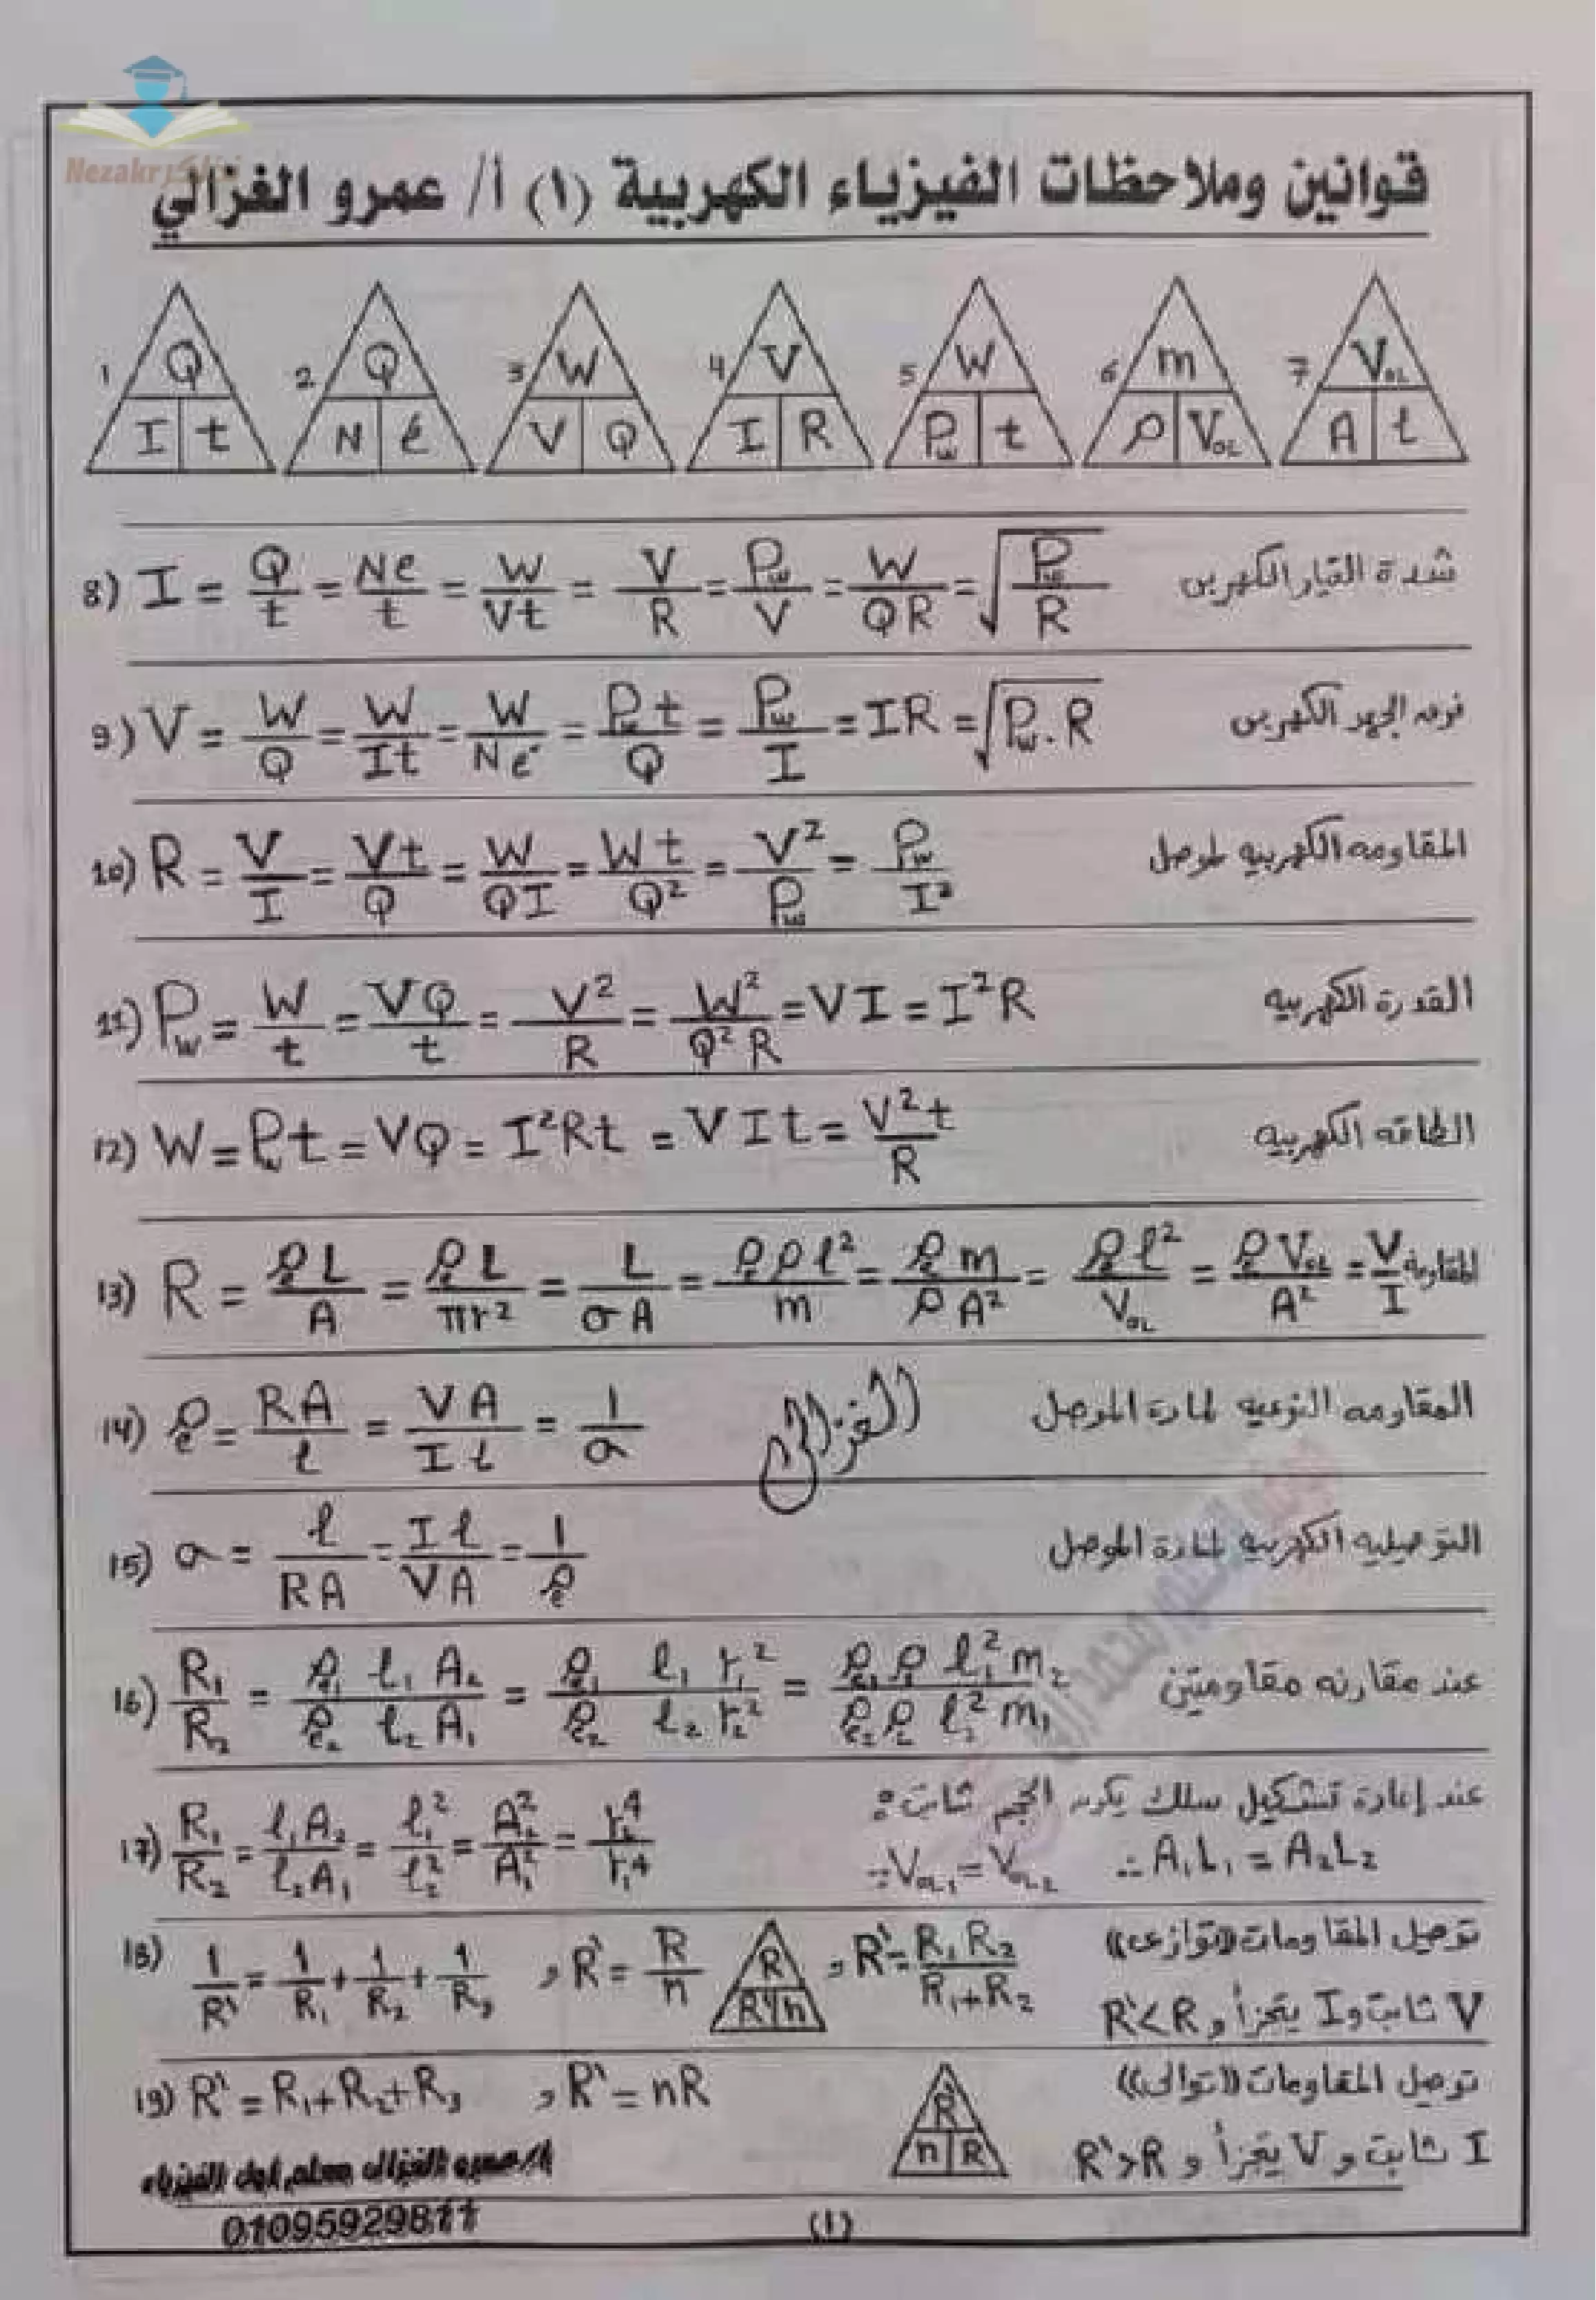 Nezakr نذاكر
قوانين وملاحظات الفيزياء الكهربية (١) أ/ عمرو الغزالي
1 Q I t
2 Q N e
3 W V Q
4 V I R
5 W Pw t
6 m ρ VoL
7 VoL A ℓ
8) I = Q/t = Ne/t = W/Vt = V/R = Pw/V = W/QR = √(Pw/R) شدة التيار الكهربى
9) V = W/Q = W/It = W/Ne = Pw t/Q = Pw/I = IR = √(Pw.R) فرق الجهد الكهربى
10) R = V/I = Vt/Q = W/QI = Wt/Q² = V²/Pw = Pw/I² المقاومه الكهربيه لموصل
11) Pw = W/t = VQ/t = V²/R = W²/Q²R = VI = I²R القدرة الكهربيه
12) W = Pw t = VQ = I²Rt = VIt = V²t/R الطاقه الكهربيه
13) R = ρe L/A = ρe L/πr² = L/σA = ρe ρ ℓ²/m = ρe m/ρA² = ρe ℓ²/VoL = ρe VoL/A² = V/I المقاومة
14) ρe = RA/ℓ = VA/Iℓ = 1/σ الغزالى المقاومه النوعيه لمادة الموصل
15) σ = ℓ/RA = Iℓ/VA = 1/ρe التوصيليه الكهربيه لمادة الموصل
16) R₁/R₂ = ρe₁ ℓ₁ A₂/ρe₂ ℓ₂ A₁ = ρe₁ ℓ₁ r₁²/ρe₂ ℓ₂ r₂² = ρe₁ ρ ℓ₁² m₂/ρe₂ ρ ℓ₂² m₁ عند مقارنه مقاومتين
عند إعادة تشكيل سلك يكون الحجم ثابت :
17) R₁/R₂ = ℓ₁A₂/ℓ₂A₁ = ℓ₁²/ℓ₂² = A₂²/A₁² = r₂⁴/r₁⁴ ∵ VoL₁ = VoL₂ ∴ A₁L₁ = A₂L₂
18) 1/R' = 1/R₁ + 1/R₂ + 1/R₃ , R' = R/n R R' n , R' = R₁R₂/R₁+R₂ توصيل المقاومات ((توازى))
V ثابت و I يتجزأ و R'<R
19) R' = R₁+R₂+R₃ , R' = nR توصيل المقاومات ((توالى))
R' n R I ثابت و V يتجزأ و R'>R
أ/عمرو الغزالى معلم أول الفيزياء
01095929811
(١)